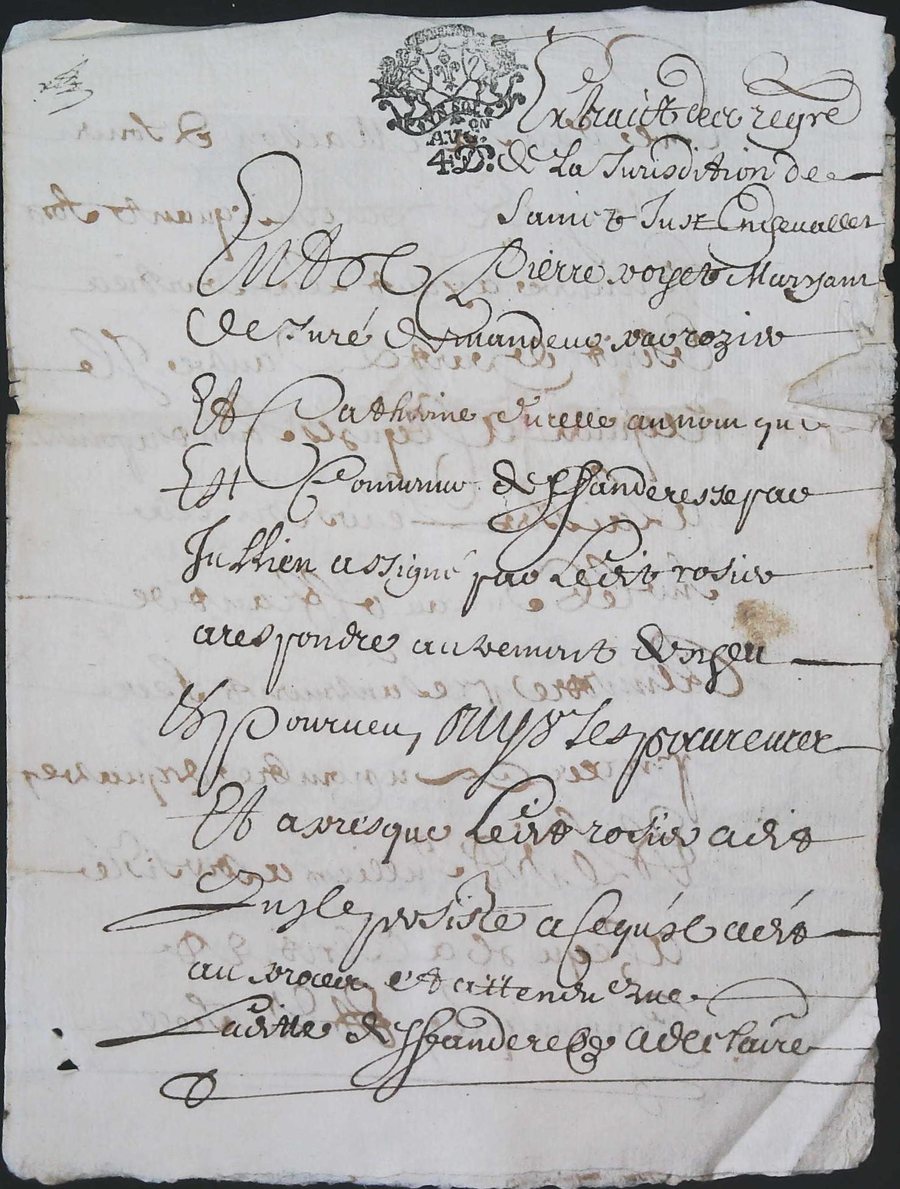 UN SOL
ON
AUG.
4 D.
Extraict des regre
de La Jurisdition de
Sainct Just Enchevallet
Entre Pierre voyet Marchant
De Juré demandeur par rozier
Et Catherine Durelle au nom que
Est Comme deffanderesse par
Jullien assigné par Ledit rosier
a respondre au
Et pourveu, ouys les procureurs
Et apres que Ledit rosier a dit
Quil persiste a Ce quil a dit
au proces et attendu que
Laditte deffanderesse a declaire